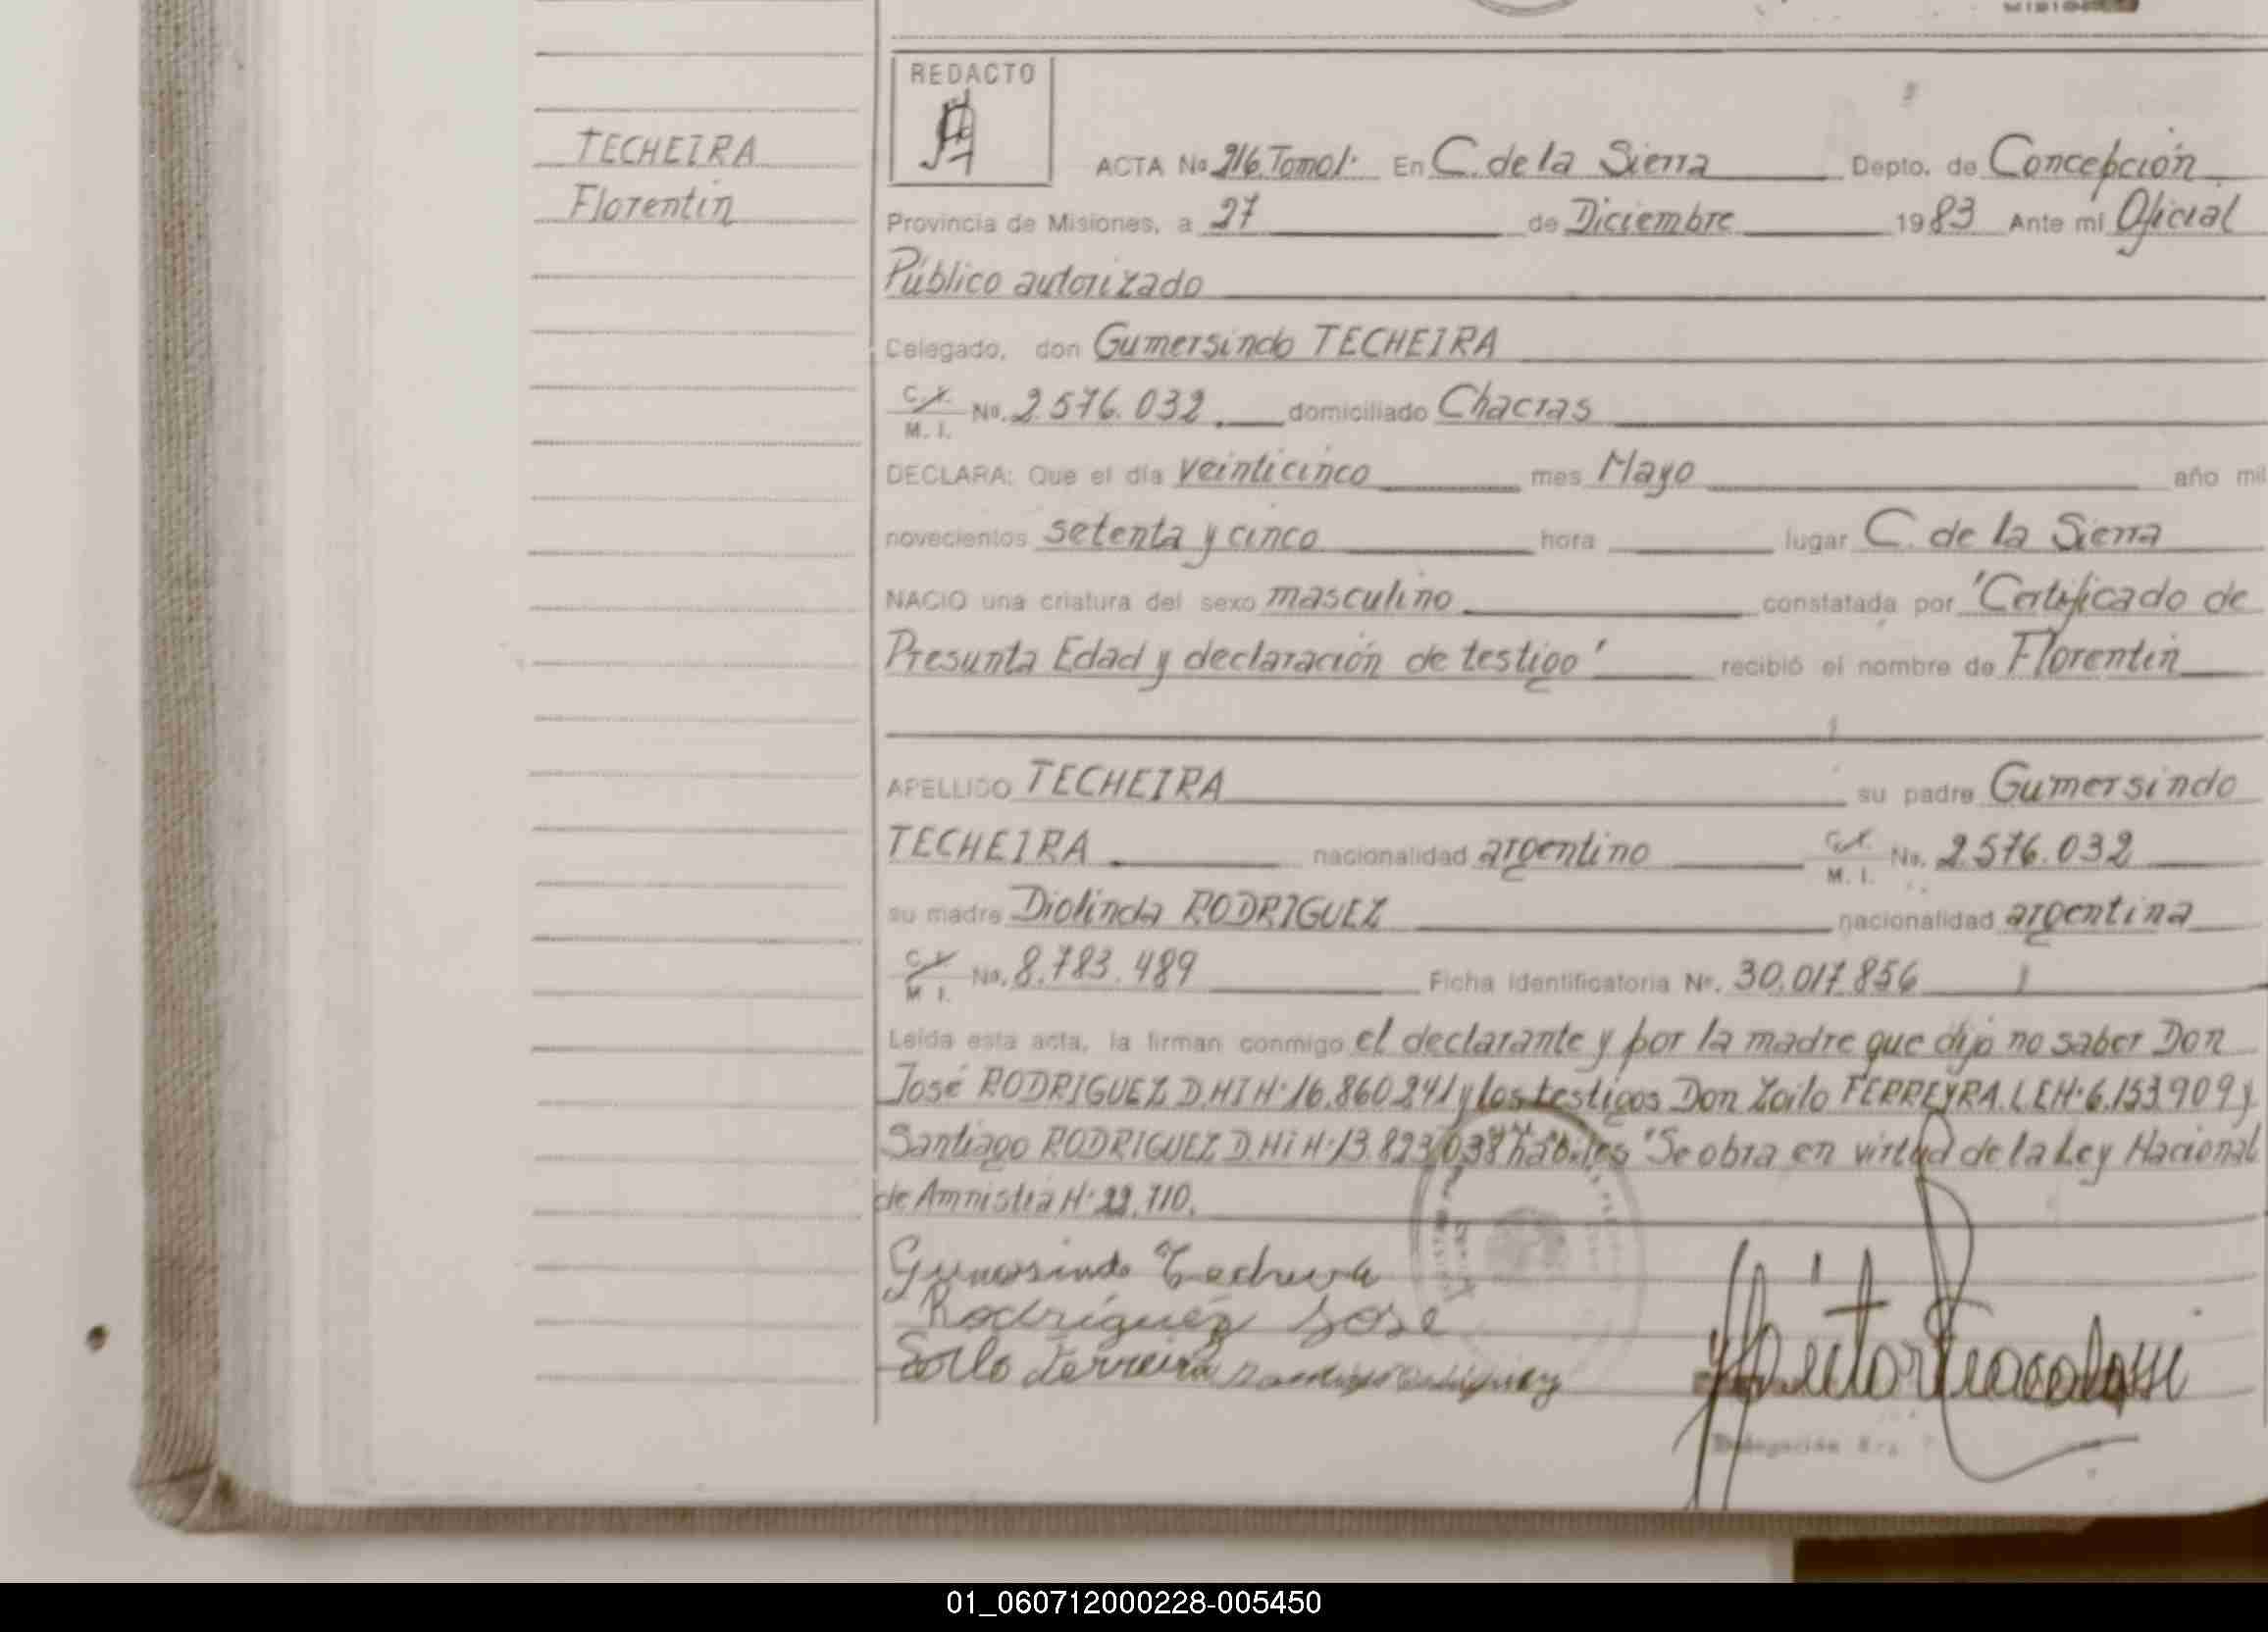 REDACTO
TECHEIRA
Florentin
ACTA No 216 Tomo I. En C. de la Sierra Depto. de Concepción
Provincia de Misiones, a 27 de Diciembre 1983 Ante mí Oficial
Público autorizado
Delegado, don Gumersindo TECHEIRA
C.I. M. I. No. 2.576.032. domiciliado Chacras
DECLARA: Que el día veinticinco mes Mayo año mil
novecientos setenta y cinco hora lugar C. de la Sierra
NACIO una criatura del sexo masculino constatada por "Certificado de
Presunta Edad y declaración de testigo" recibió el nombre de Florentin
APELLIDO TECHEIRA su padre Gumersindo
TECHEIRA nacionalidad argentino C.I. M. I. No. 2.576.032
su madre Diolinda RODRIGUEZ nacionalidad argentina
C.I. M I. No. 8.783.489 Ficha Identificatoria Nº. 30.017.856
Leída esta acta, la firman conmigo el declarante y por la madre que dijo no saber Don
José RODRIGUEZ D.N.I N° 16.860.241 y los testigos Don Zoilo FERREYRA. L E N° 6.153.909 y
Santiago RODRIGUEZ D.N.I N° 13.823.038 hábiles "Se obra en virtud de la Ley Nacional
de Amnistía N° 22.710.
Gumersindo Techeira
Rodríguez José
Soilo Ferreira Santiago Rodriguez
Delegación
01_060712000228-005450